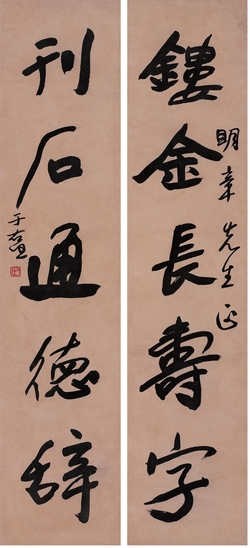 鏤金長壽字
明章先生正
刊石通德辞
于右任